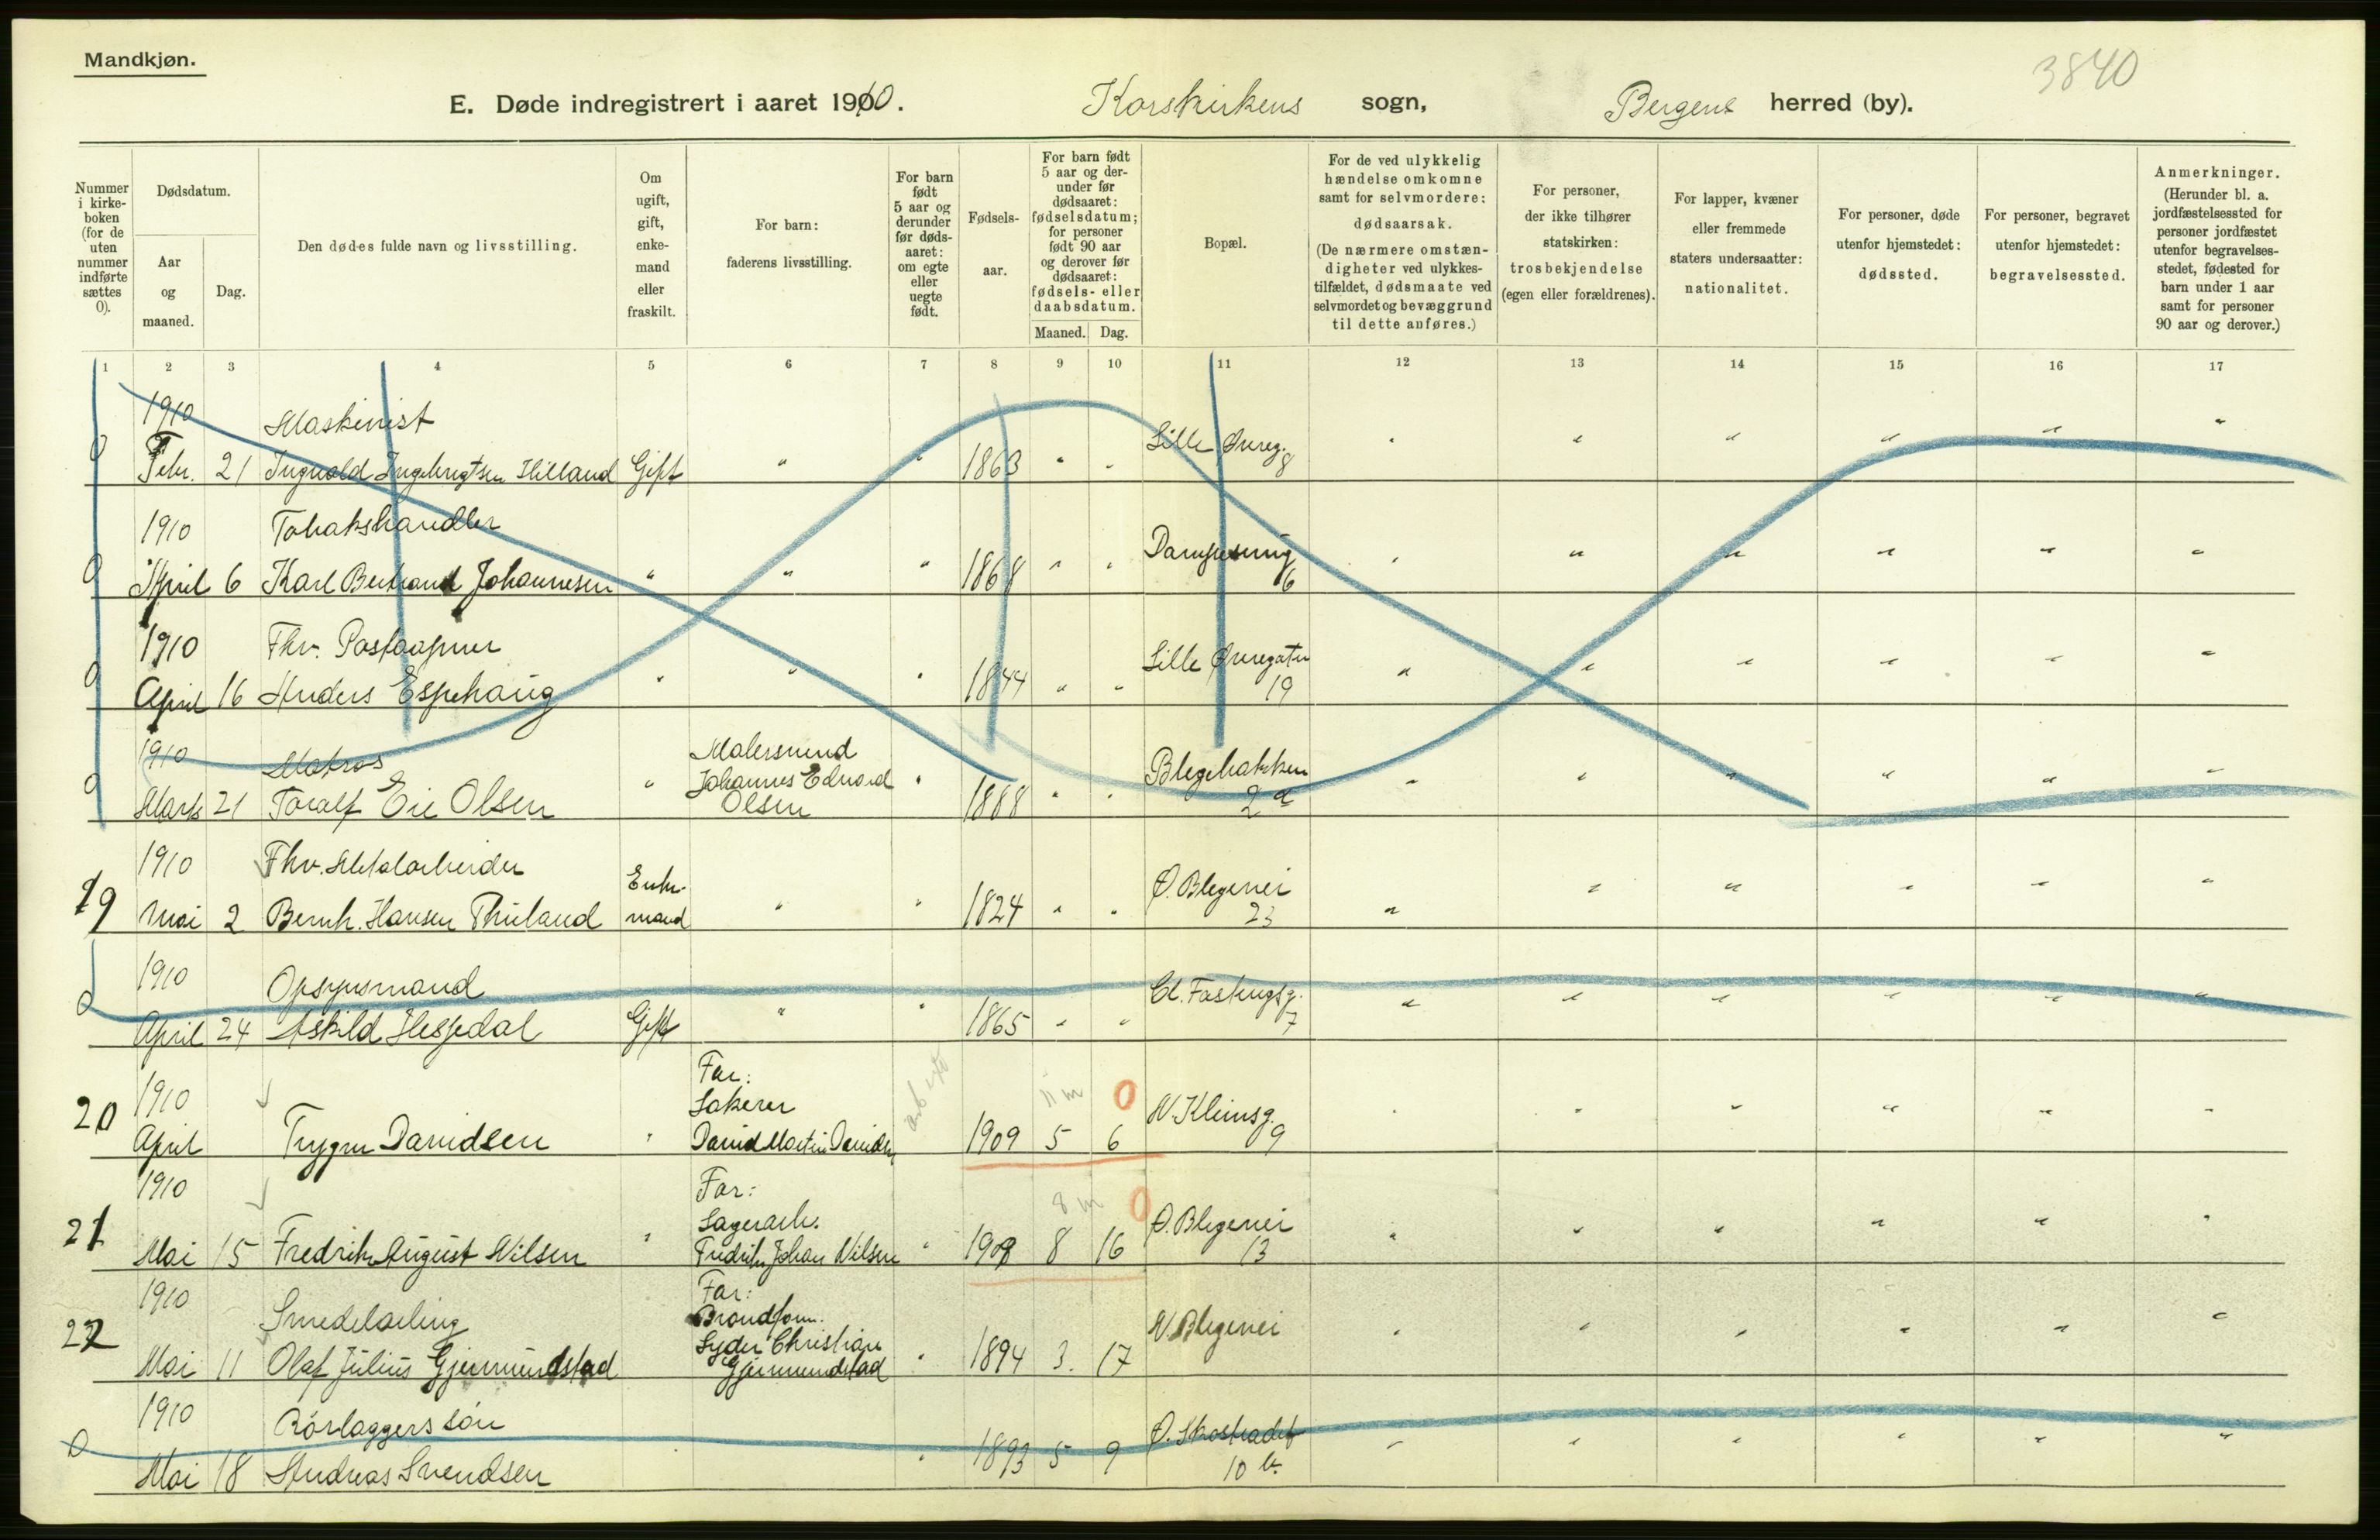 Mandkjøn.
3840
E. Døde indregistrert i aaret 1910. Korskirkens sogn, Bergens herred (by).
Nummer i kirkeboken (for de uten nummer indførte sættes 0).
Dødsdatum.
Aar og maaned.
Dag.
Den dødes fulde navn og livsstilling.
Om ugift, gift, enkemand eller fraskilt.
For barn: faderens livsstilling.
For barn født 5 aar og derunder før dødsaaret: om egte eller uegte født.
Fødselsaar.
For barn født 5 aar og derunder før dødsaaret: fødselsdatum; for personer født 90 aar og derover før dødsaaret: fødsels- eller daabsdatum.
Maaned. Dag.
Bopæl.
For de ved ulykkelig hændelse omkomne samt for selvmordere: dødsaarsak. (De nærmere omstændigheter ved ulykkestilfældet, dødsmaate ved selvmordet og bevæggrund til dette anføres.)
For personer, der ikke tilhører statskirken: trosbekjendelse (egen eller forældrenes).
For lapper, kvæner eller fremmede staters undersaatter: nationalitet.
For personer, døde utenfor hjemstedet: dødssted.
For personer, begravet utenfor hjemstedet: begravelsessted.
Anmerkninger. (Herunder bl. a. jordfæstelsessted for personer jordfæstet utenfor begravelsesstedet, fødested for barn under 1 aar samt for personer 90 aar og derover.)
1 2 3 4 5 6 7 8 9 10 11 12 13 14 15 16 17
1910 Maskinist
0 Febr. 21 Ingvald Ingebrigtsen Hilland Gift " " 1863 " " Lille Øvreg. 8
1910 Tobakshandler
0 April 6 Karl Bertrand Johannesen " " " 1868 " " Dampesmug 6
1910 Fhv. Postaapner
0 April 16 Anders Espehaug " " " 1844 " " Lille Øvregaten 19
1910 Matros
0 Marts 21 Toralf Eie Olsen " Malersvend Johannes Edvard Olsen " 1888 " " Blegebakken 2 a
1910 Fhv. Metalarbeider
19 Mai 2 Bernh. Hansen Thuland Enkemand " " 1824 " " Ø. Blegevei 23
1910 Opsynsmand
0 April 24 Askild Hespedal Gift " " 1865 " " Cl. Fastingsg. 7
1910 Far:
Sakerer 11 m 0
20 April Trygve Davidsen " David Martin Davidsen 1909 5 6 N. Kleivsg. 9
1910 Far:
Lagerarb. 8 m 0
21 Mai 15 Fredrik August Nilsen " Fredrik Johan Nilsen " 1909 8 16 Ø. Blegevei 13
1910 Far:
Smedelærling Brandform.
22 Mai 11 Olaf Julius Gjermundstad Lyder Christian Gjermundstad " 1894 3. 17 N. Blegevei
1910 Rörlæggers sön
0 Mai 18 Andreas Svendsen " 1893 5 9 Ø. Skostrædet 10 b.